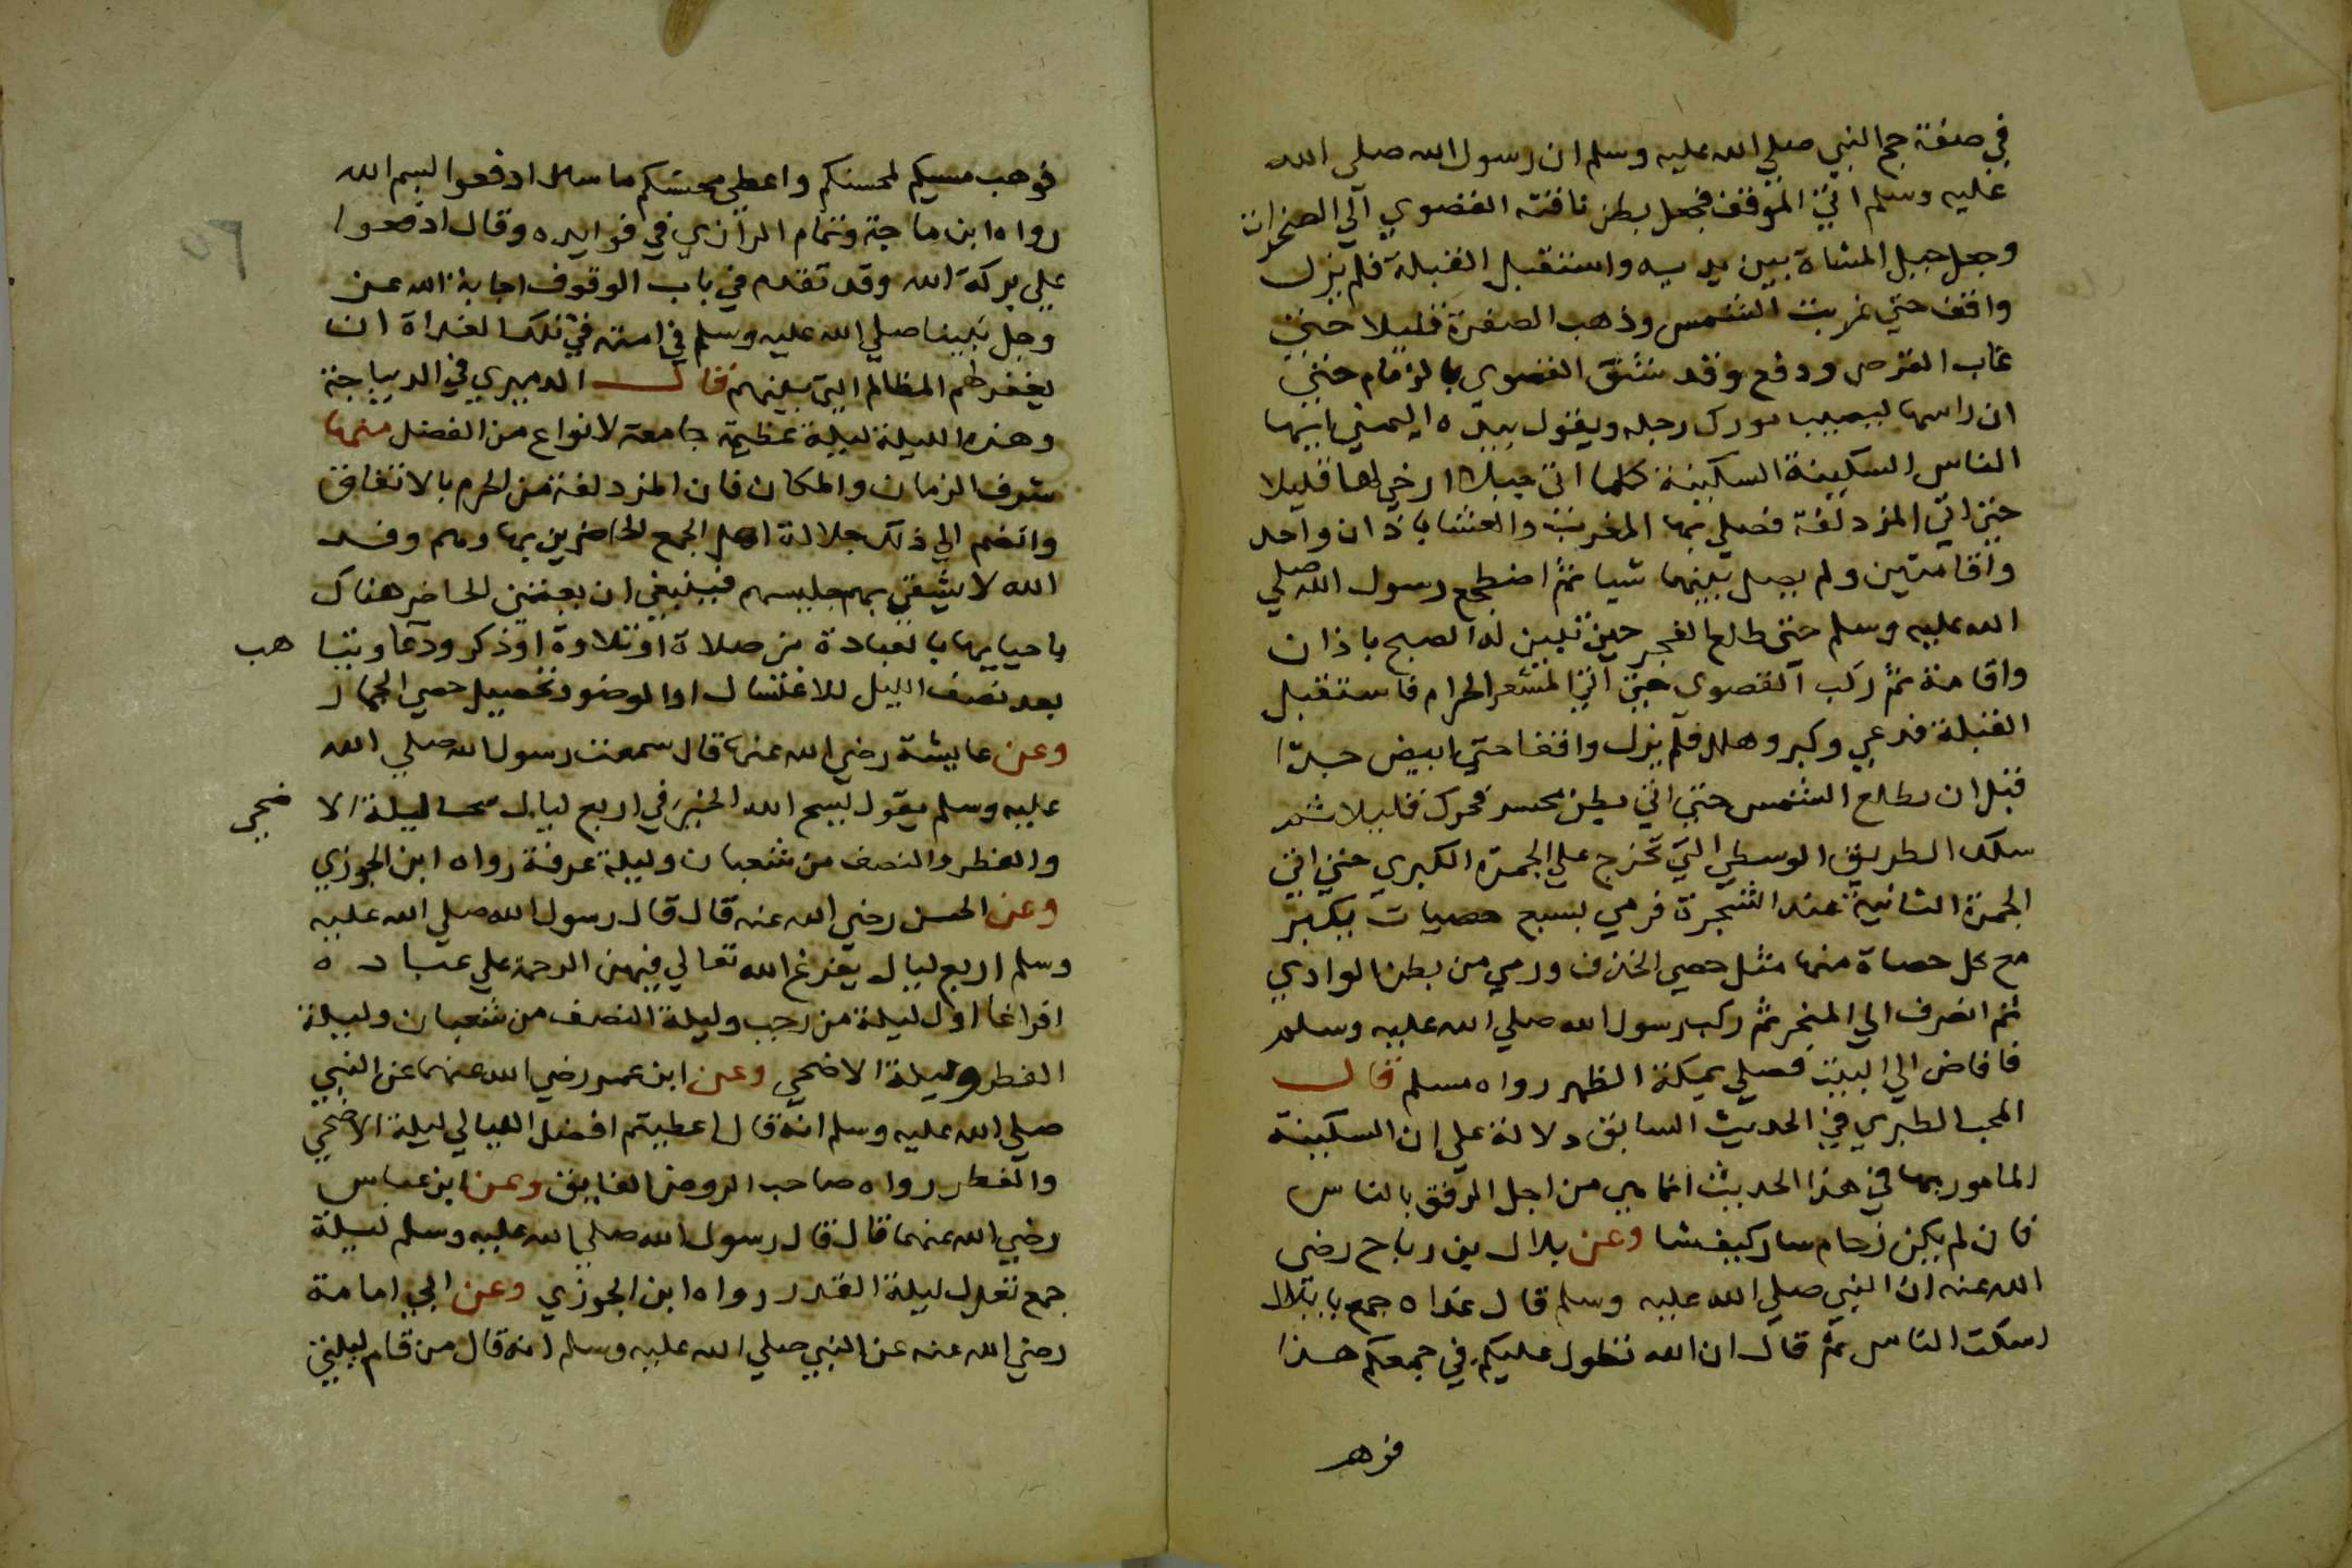 في صفة حج النبي صلي الله عليه وسلم ان رسول الله صلى الله
عليه وسلم اتي الموقف فجعل بطن ناقته القصوي الي الصخرات
وجعل حبل المشاة بين يديه واستقبل القبلة فلم يزل
واقف حتي غربت الشمس وذهب الصفرة قليلا حتي
غاب القرص ودفع وقد شنق القصوي بالزمام حتي
ان راسها ليصيب مورك رجله ويقول بيده اليمني ايها
الناس السكينة السكينة كلما اتي حبلا ارخي لها قليلا
حتي اتي المزدلفة فصلي بها المغرب والعشا باذان واحد
واقامتين ولم يصل بينهما شيا ثم اضطجع رسول الله صلي
الله عليه وسلم حتى طلع الفجر حين تبين له الصبح باذان
واقامة ثم ركب القصوي حتي اتي المشعر الحرام فاستقبل
القبلة فدعي وكبر وهلل فلم يزل واقفا حتي ابيض جدا
قبل ان يطلع الشمس حتي اتي بطن محسر فحرك قليلا ثم
سلك الطريق الوسطي التي تخرج علي الجمرة الكبري حتي اتي
الجمرة الثانية عند الشجرة فرمي بسبع حصيات يكبر
مع كل حصاة منها مثل حصي الخذف ورمي من بطن الوادي
ثم انصرف الي المنحر ثم ركب رسول الله صلي الله عليه وسلم
فافاض الي البيت فصلي بمكة الظهر رواه مسلم قال
المحب الطبري في الحديث السابق دلالة علي ان السكينة
المامور بها في هذا الحديث انما هي من اجل الرفق بالناس
فان لم يكن زحام سار كيف شا وعن بلال بن رباح رضي
الله عنه ان النبي صلي الله عليه وسلم قال غداه جمع يا بلال
اسكت الناس ثم قال ان الله تطول عليكم في جمعكم هذا
فوهب
فوهب مسيكم لمحسنكم واعطي محسنكم ما سال ادفعوا بسم الله
رواه ابن ماجة وتمام الرازي في فوايده وقال ادفعوا
علي بركة الله وقد تقدم في باب الوقوف اجابة الله عز
وجل نبينا صلي الله عليه وسلم في امته في تلك الغداة ان
يغفر لهم المظالم التي بينهم قال الدميري في الديباجة
وهذه الليلة ليلة عظيمة جامعة لانواع من الفضل منها
شرف الزمان والمكان فان المزدلفة من الحرم بالاتفاق
وانضم الي ذلك جلالة اهل الجمع الحاضرين بها وهم وفد
الله لا يشقي بهم جليسهم فينبغي ان يعتني الحاضر هناك
باحيايها بالعبادة من صلاة او تلاوة او ذكر ودعا ويتا هب
بعد نصف الليل للاغتسال او الوضو وتحصيل حصي الجمار
وعن عايشة رضي الله عنها قال سمعت رسول الله صلي الله
عليه وسلم يقول يسح الله الخير في اربع ليال سحا ليلة الا ضحي
والفطر والنصف من شعبان وليلة عرفة رواه ابن الجوزي
وعن الحسن رضي الله عنه قال قال رسول الله صلي الله عليه
وسلم اربع ليال يفرغ الله تعالي فيهن الرحمة علي عباده
افراغا اول ليلة من رجب وليلة النصف من شعبان وليلة
الفطر وليلة الاضحي وعن ابن عمر رضي الله عنهما عن النبي
صلي الله عليه وسلم انه قال اعطيتم افضل الليالي ليلة الاضحي
والفطر رواه صاحب الروض الفايق وعن ابن عباس
رضي الله عنهما قال قال رسول الله صلي الله عليه وسلم ليلة
جمع تعدل ليلة القدر رواه ابن الجوزي وعن ابي امامة
رضي الله عنه عن النبي صلي الله عليه وسلم انه قال من قام ليلتي